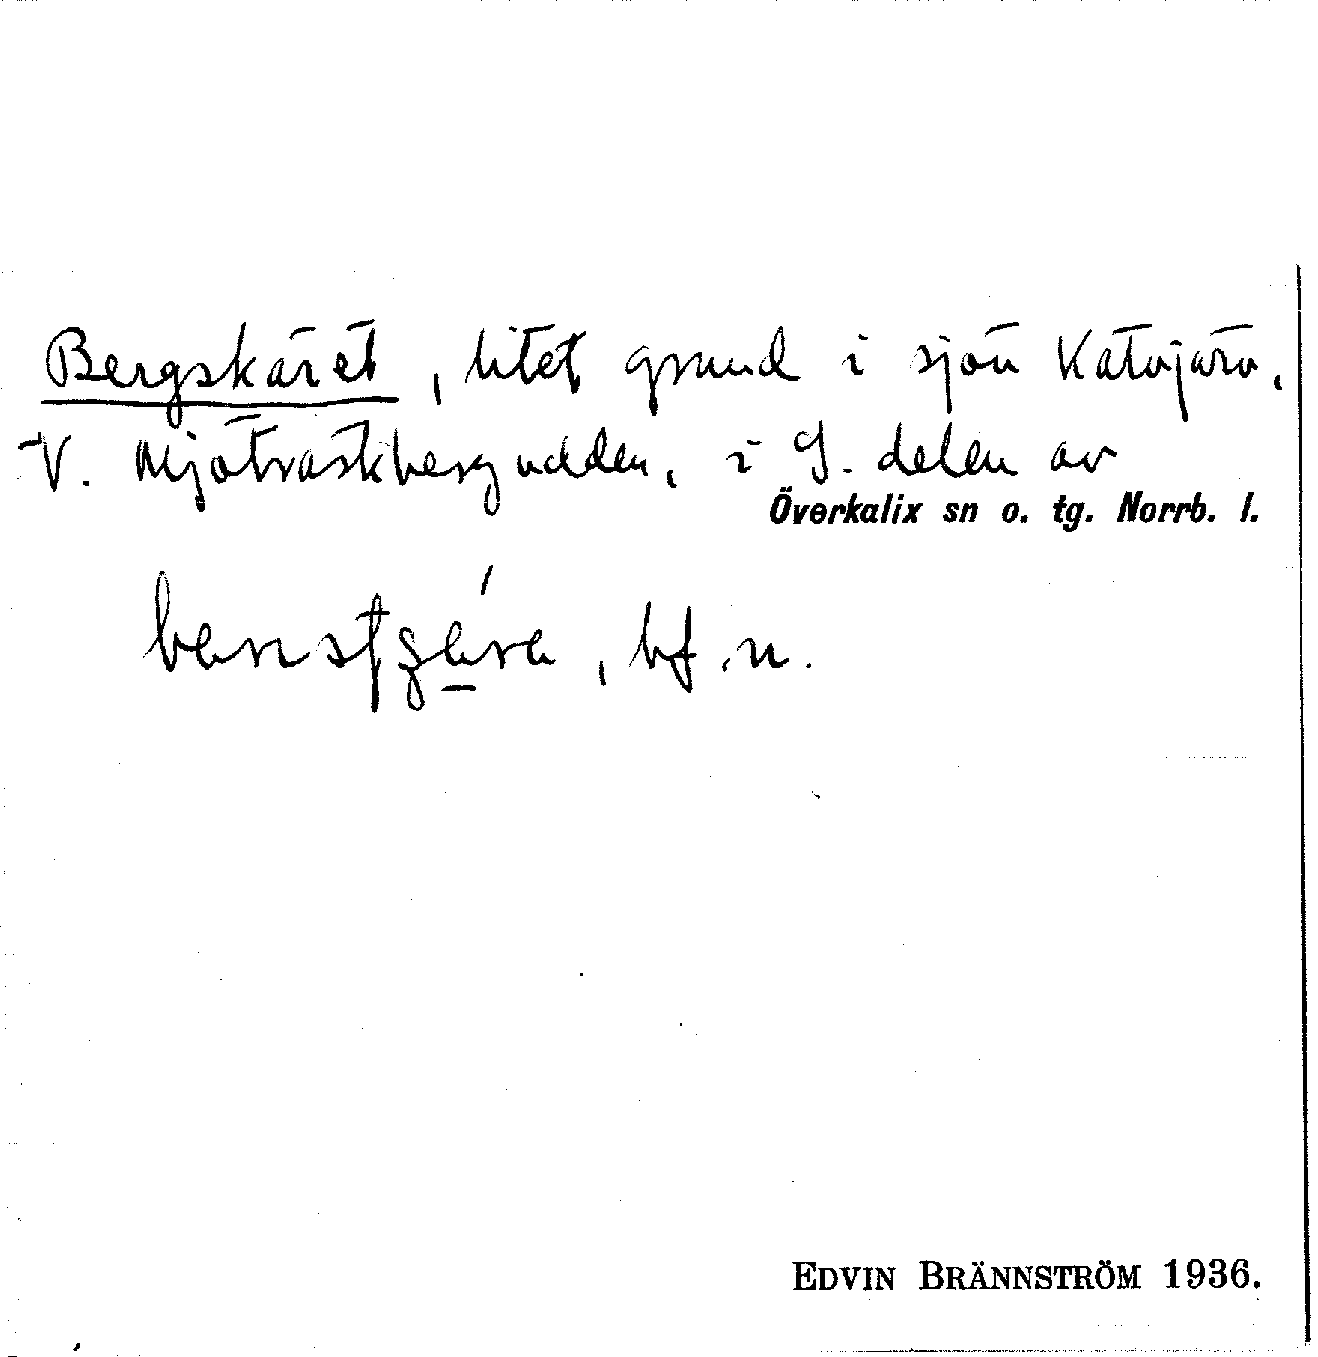 Bergskäret, litet grund i sjön Katojärv,
V. Mjöträskbergudden, i S. delen av
Överkalix sn o. tg. Norrb. l.
, bf. n.
EDVIN BRÄNNSTRÖM 1936.